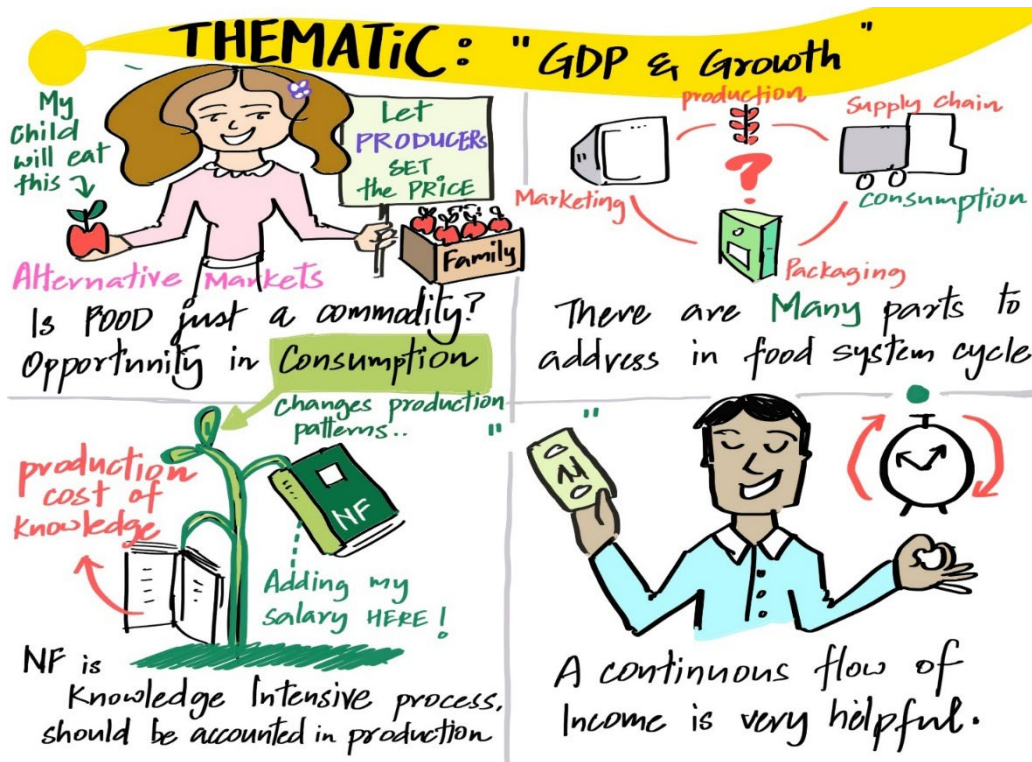 THEMATIC: "GDP & Growth"
My
child
will eat
this
Let
PRODUCERS
SET
the PRICE
Family
Alternative Markets
Is FOOD just a commodity?
Opportunity in Consumption
production
Supply chain
Marketing
?
consumption
Packaging
There are Many parts to
address in food system cycle
changes production
patterns..
production
cost of
knowledge
NF
Adding my
salary HERE!
NF is
Knowledge Intensive process,
should be accounted in production
A continuous flow of
Income is very helpful.